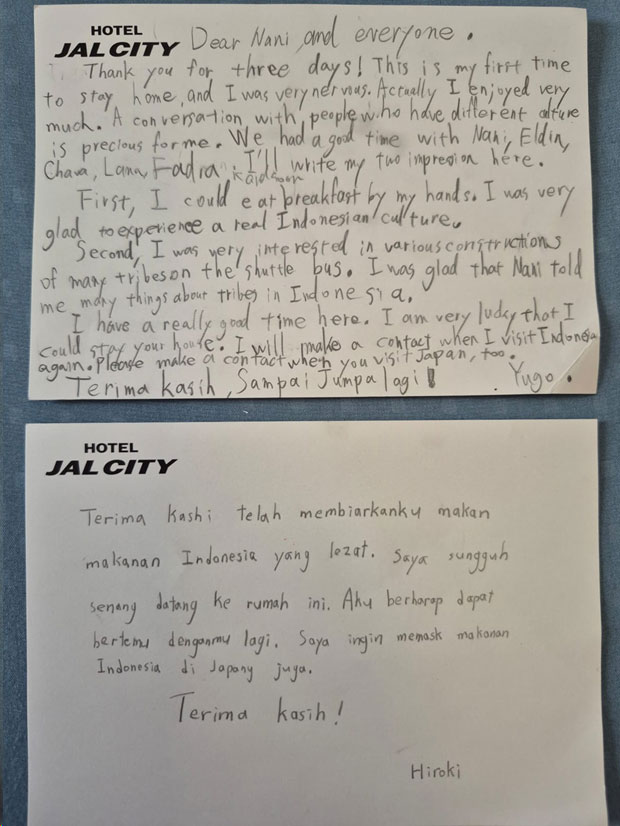 HOTEL
JAL CITY
Dear Nani and everyone.
Thank you for three days! This is my first time
to stay home, and I was very nervous. Actually I enjoyed very
much. A conversation with people who have different culture
is precious for me. We had a good time with Nani, Eldin,
Chava, Lana, Fadia, I'll write my two impression here.
First, I could eat breakfast by my hands. I was very
glad to experience a real Indonesian culture.
Second, I was very interested in various constructions
of many tribes on the shuttle bus. I was glad that Nani told
me many things about tribes in Indonesia.
I have a really good time here. I am very lucky that I
could stay your house. I will make a contact when I visit Indonesia
again. Please make a contact when you visit Japan, too.
Terima kasih, Sampai Jumpa lagi! Yugo.
HOTEL
JAL CITY
Terima kashi telah membiarkanku makan
makanan Indonesia yang lezat. Saya sungguh
senang datang ke rumah ini. Aku berharap dapat
bertemu denganmu lagi. Saya ingin memask makanan
Indonesia di Japany juga.
Terima kasih!
Hiroki